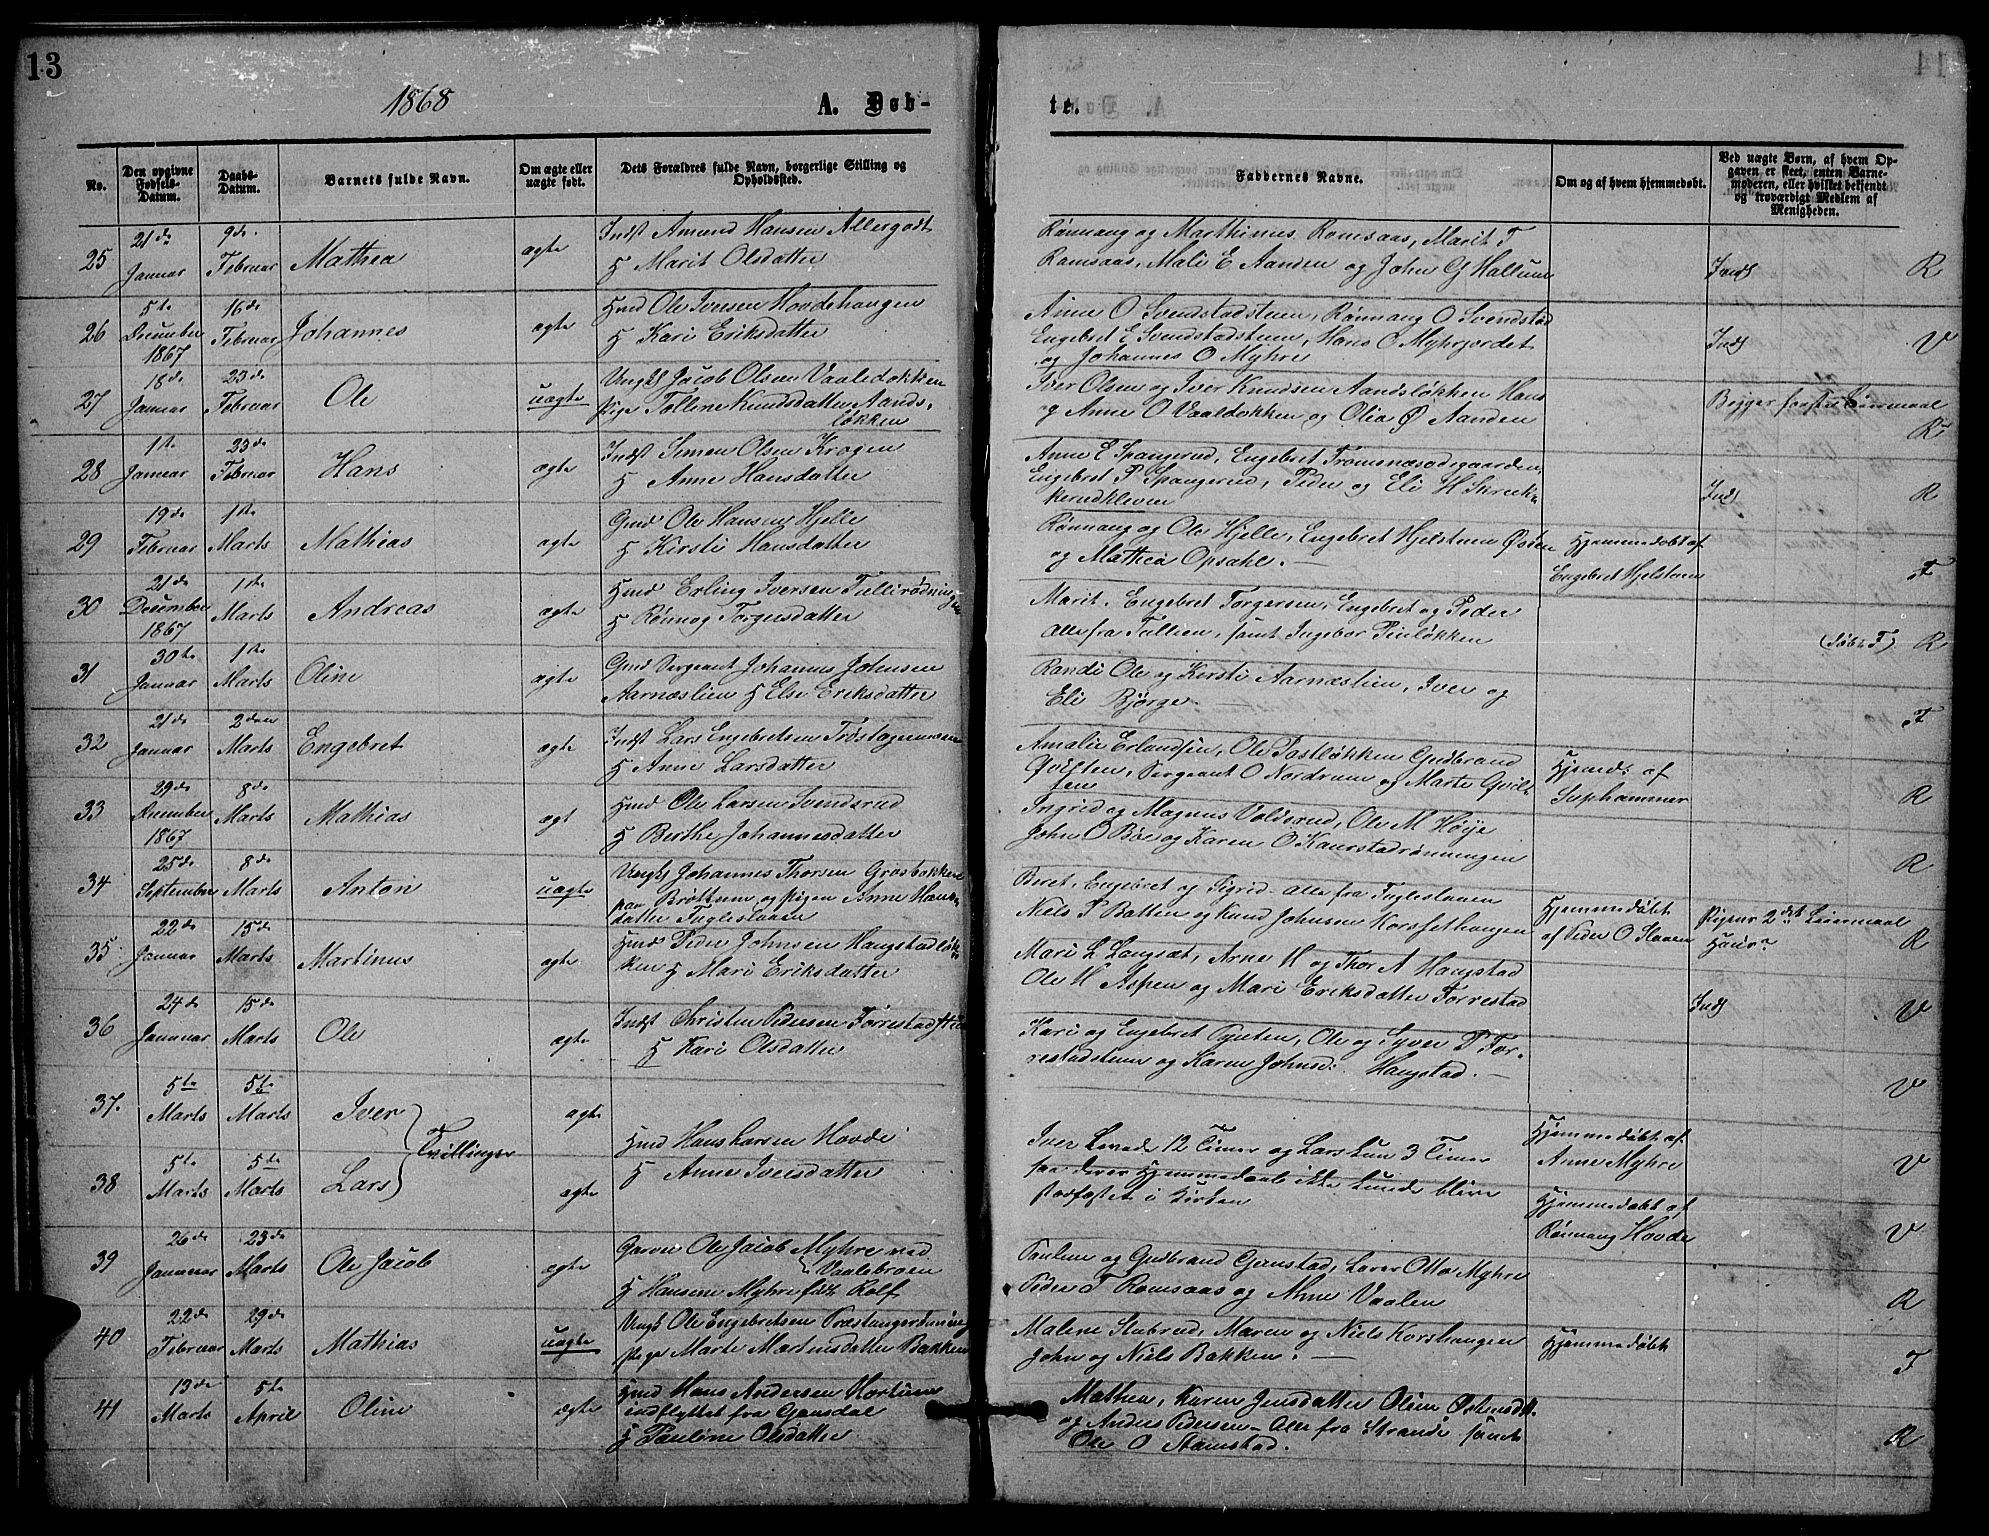 13
1868
A. Døb-
te.
No.
Den opgivne Fødsels-Datum.
Daabs-Datum.
Barnets fulde Navn.
Om ægte eller uægte født.
Dets Forældres fulde Navn, borgerlige Stilling og Opholdssted.
Faddernes Navne.
Om og af hvem hjemmedøbt.
Ved uægte Børn, af hvem Op-
gaven er skeet, enten Barne-
moderen, eller hvilket bekjendt
og troværdigt Medlem af
Menigheden.
25 21de Januar 9de Februar Mathea ægte
Indst Amund Hansen Allergodt
H Marit Olsdatter
Rønnaug og Marthinus Romsaas, Marit T
Romsaas, Mali E Aanden og John G Hallum
Inds R
26 5te December 1867 16de Februar Johannes ægte
Hmd Ole Iversen Hovdehaugen
H Kari Eriksdatter
Anne O Svendstadstuen, Rønnaug O Svendstad
Engebret E Svendstadstuen, Hans O Myhrjordet
og Johannes O Myhre
Inds V
27 18de Januar 23de Februar Ole uægte
Ungk Jacob Olsen Vaaledokken
Pige Tolline Knudsdatter Aands-
løkken
Iver Olsen og Iver Knudsen Aandsløkken Hans
og Anne O Vaaldokken og Olia Ø Aanden
Begges første Leiermaal
R
28 1te Januar 23de Februar Hans ægte
Indst Simen Olsen Krogen
H Anne Hansdatter
Anne E Spangerud, Engebret Tromsnæsodegaarden,
Engebret P Spangerud, Peder og Eli H Skruk-
kerudkleven
Inds R
29 19de Februar 1te Marts Mathias ægte
Gmd Ole Hansen Hjelle
H Kirsti Hansdatter
Rønnaug og Ole Hjelle, Engebret Hjelstuen Østen
og Mathea Opsahl.
Hjemmedøbt af
Engebret Hjelstuen
F
30 21de December 1867 1te Marts Andreas ægte
Hmd Erling Iversen Tullirødningen
H Rønnog Torgersdatter
Marit, Engebret Torgersen, Engebret og Peder
alle fra Tullien, samt Ingebor Tinløkken
(Døbt F) R
31 30te Januar 1te Marts Oline ægte
Gmd Sergeant Johannes Johnsen
Aarnæslien H Else Eriksdatter
Randi Ole og Kirsti Aarnæslien, Iver og
Eli Bjørge.
F
32 21de Januar 2den Marts Engebret ægte
Indst Lars Engebretsen Trøstagernæsen
H Anne Larsdatter
Amalie Erlandsen, Ole Pastløkken Gudbrand
Qviften, Sergeant O Nordrum og Marte Qvif-
ten
Hjemd: af
Suphammer
R
33 29de December 1867 8de Marts Mathias ægt
Hmd Ole Larsen Svendsrud
H Berthe Johannesdatter
Ingrid og Magnus Voldsrud, Ole M Høije
John O Bøe og Karen O Kaurstadrønningen
R
34 25de September 8de Marts Anton uægte
Ungk Johannes Thorsen Grosbakken
paa Brøttum og Pigen Anne Hans-
datter Fugleslaaen
Beret, Engebret og Sigrid alle fra Fugleslaaen
Niels P Batten og Knud Johnsen Korsfethaugen
Hjemmedøbt
af Peder O Haaen
Pigens 2det Leiermaal
Hans
R
35. 22de Januar 15de Marts Martinus ægte
Hmd Peder Johnsen Haugstadløk-
ken H Mari Eriksdatter
Mari L Langsæt, Arne H og Thor A Haugstad
Ole H Aspen og Mari Eriksdatter Forrestad
Inds V
36 24de Januar 15de Marts Ole ægte
Indst Christen Pedersen Forrestadstuen
H Kari Olsdatter
Kari og Engebret Pynten, Ole og Syver P For-
restadstuen og Karen Johnsd: Haugstad.
V
37. 5te Marts 5te Marts Iver ægte
Tvillinger
38 5te Marts 5te Marts Lars ægte
Hmd Hans Larsen Hovde
H Anne Iversdatter
Iver Levede 12 Timer og Lars kun 3 Timer
saa deres Hjemmedaab ikke kunde blive
stadfæstet i Kirken
Hjemmedøbt af
Anne Myhre
V
Hjemmedøbt af
Rønnaug Hovde
V
39 26de Januar 23de Marts Ole Jacob ægte
Garver Ole Jacob Myhre ved
Vaalebroen
H Hansine Myhre født Rolf
Pauline og Gudbrand Gjenstad, Lærer Otto Myhre
Peder T Romsaas og Anne Vaalen
R
40 22de Februar 29de Marts Mathias uægte
Ungk Ole Engebretsen Præstangerønning
Pige Marte Martinusdatter Bakken
Malene Stubrud, Maren og Niels Korshaugen
John og Niels Bakken.
Hjemmedøbt
F
41 13de Marts 5te April Oline ægte
Hmd Hans Andersen Hortuen
indflyttet fra Gausdal
H Pauline Olsdatter
Mathea, Karen Jensdatter Oline Østensdt.
og Anders Pedersen alle fra Strande samt
Ole O Stamstad.
R